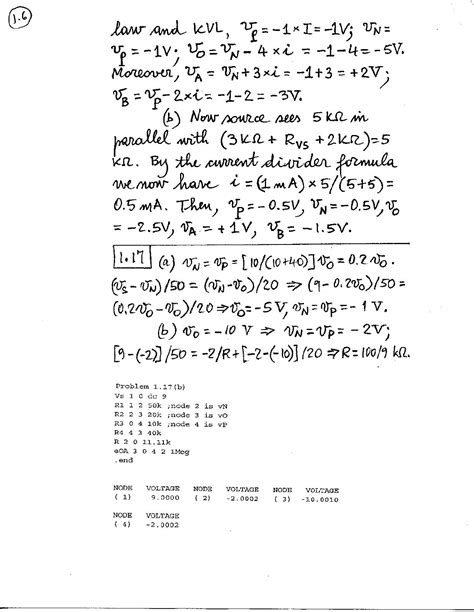 1.6
law and KVL, v_P = -1 × I = -1V; v_N =
v_P = -1V; v_O = v_N - 4 × i = -1-4 = -5V.
Moreover, v_A = v_N + 3 × i = -1+3 = +2V;
v_B = v_P - 2×i = -1-2 = -3V.
(b) Now source sees 5 kΩ in
parallel with (3kΩ + R_VS + 2kΩ) = 5
kΩ. By the current divider formula
we now have i = (1 mA) × 5/(5+5) =
0.5 mA. Then, v_P = -0.5V, v_N = -0.5V, v_O
= -2.5V, v_A = +1V, v_B = -1.5V.
1.17 (a) v_N = v_P = [10/(10+40)] v_O = 0.2 v_O.
(v_S - v_N)/50 = (v_N - v_O)/20 ⇒ (9 - 0.2v_O)/50 =
(0.2v_O - v_O)/20 ⇒ v_O = -5V, v_N = v_P = -1V.
(b) v_O = -10 V ⇒ v_N = v_P = -2V;
[9-(-2)]/50 = -2/R + [-2-(-10)]/20 ⇒ R = 100/9 kΩ.
Problem 1.17(b)
Vs 1 0 dc 9
R1 1 2 50k ;node 2 is vN
R2 2 3 20k ;node 3 is vO
R3 0 4 10k ;node 4 is vP
R4 4 3 40k
R 2 0 11.11k
eOA 3 0 4 2 1Meg
.end
NODE VOLTAGE NODE VOLTAGE NODE VOLTAGE
( 1) 9.0000 ( 2) -2.0002 ( 3) -10.0010
NODE VOLTAGE
( 4) -2.0002